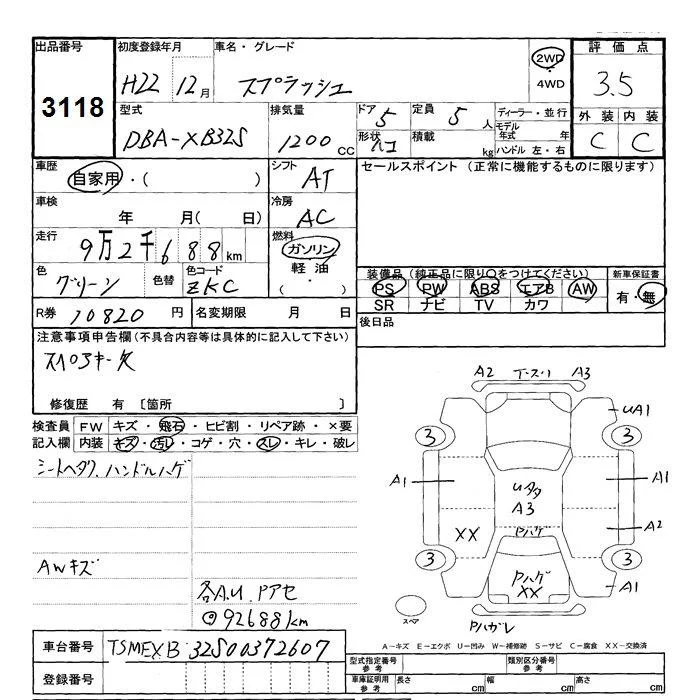 出品番号 初度登録年月 車名・グレード 2WD 評価点
3118 H22 12月 スプラッシュ 4WD 3.5
型式 排気量 ドア 5 定員 5人 ディーラー・並行 外装 内装
DBA-XB32S 1200cc 形状 ハコ 積載 kg モデル年式 年 C C
ハンドル 左・右
車歴 自家用・( ) シフト AT セールスポイント (正常に機能するものに限ります)
車検 年 月( 日) 冷房 AC
走行 9万2千688km 燃料 ガソリン
色 グリーン 色替 色コード ZKC 軽油 ・( )
装備品 (純正品に限り○をつけてください) 新車保証書
PS PW ABS エアB AW 有・無
SR ナビ TV カワ
R券 10820円 名変期限 月 日 後日品
注意事項申告欄(不具合内容等は具体的に記入して下さい)
スペアキー欠
修復歴 有 [箇所 ]
検査員 FW キズ・飛石・ヒビ割・リペア跡・×要
記入欄 内装 キズ・汚レ・コゲ・穴・スレ・キレ・破レ
シートヘタク、ハンドルハゲ
AWキズ
各A.U Pアセ
92688km
A2 T・スリ A3
UA1
3 3
A1 A1
Uタタ
A3
A2
XX Pハゲ
3 3
Pハゲ
XX
A1
スペア Pハガレ
A-キズ E-エクボ U-凹み W-補修跡 S-サビ C-腐食 XX-交換済
車台番号 TSMEXB32S00372607
登録番号
型式指定番号 参考 類別区分番号 参考
車庫証明用 参考 長さ cm 幅 cm 高さ cm